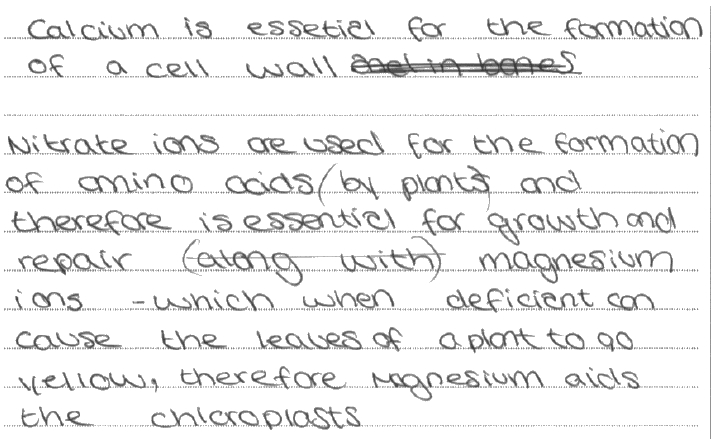 Calcium is essetial for the formation
of a cell wall and in bones
Nitrate ions are used for the formation
of amino acids (by plants) and
therefore is essential for growth and
repair (along with) magnesium
ions - which when deficient can
cause the leaves of a plant to go
yellow, therefore Magnesium aids
the chloroplasts